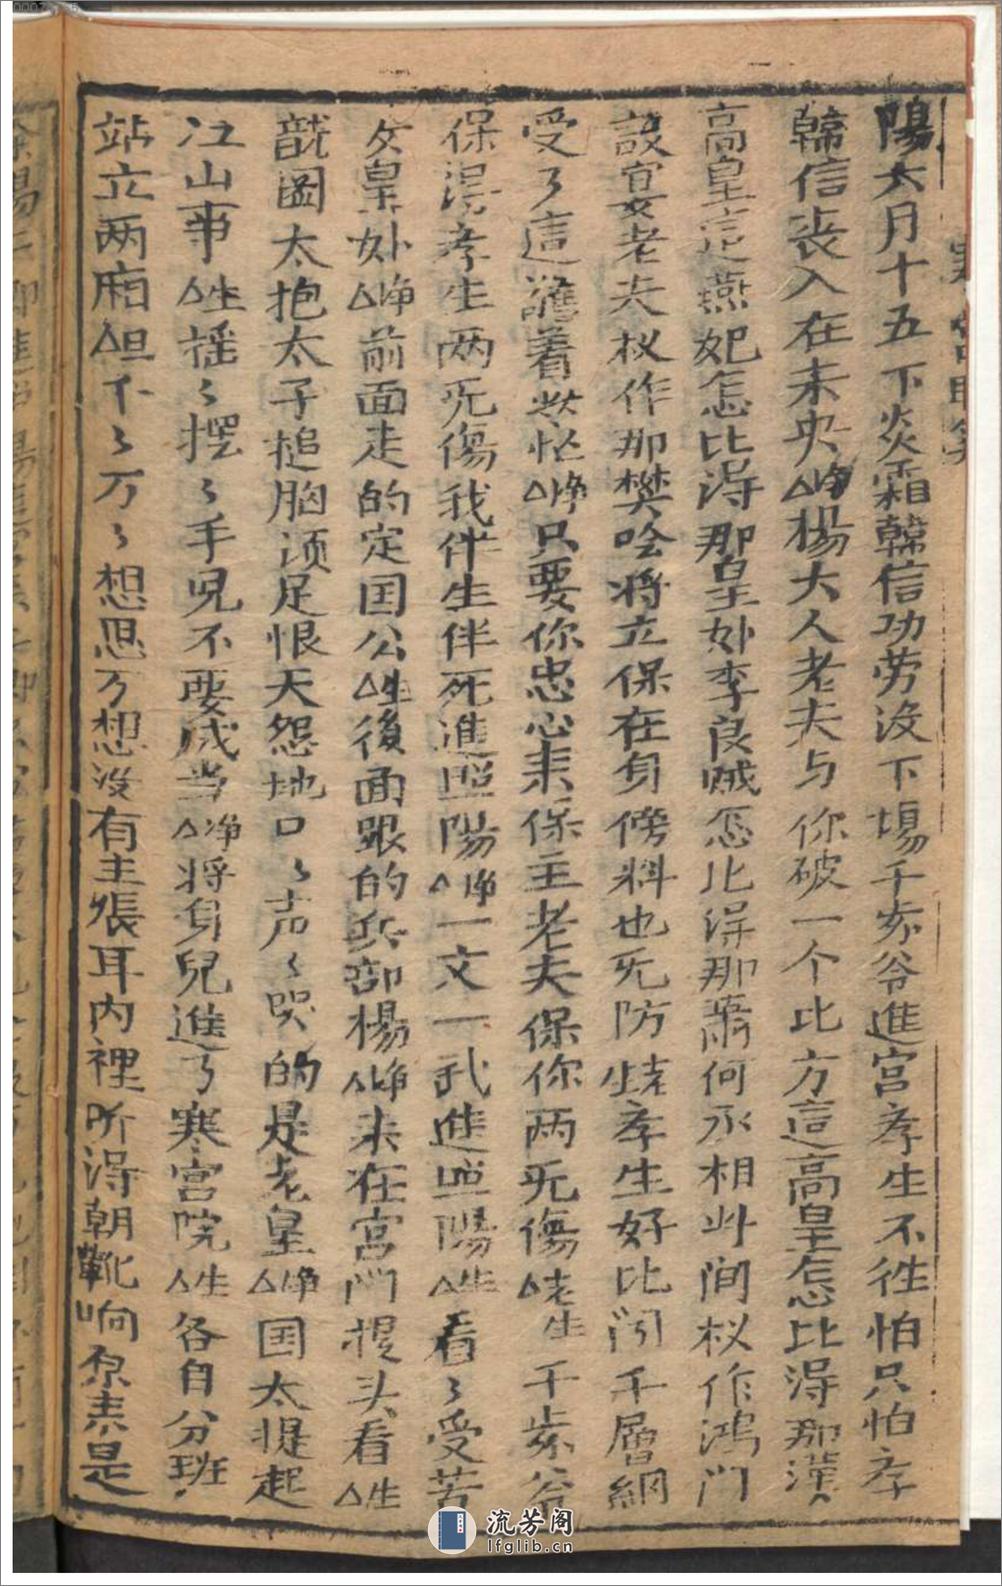 陽六月十五下炎霜韓信功劳没下場千岁爷進宫孝生不徃怕只怕孝
韓信丧入在未央△净楊大人老夫与你破一个比方這高皇怎比得那漢
高皇這燕妃怎比得那皇妙李良贼怎比得那萧何丞相此间权作鴻门
設宴老夫权作那樊哙将立保在身傍料也旡防△老生孝生好比闯千層網
受了這謊着些忙△净只要你忠心耒保主老夫保你两旡傷△老生千岁爷
保得孝生两旡傷我伴生伴死進照陽△净一文一武進照陽△生看々受苦
女皇妙△净前面走的定国公△生後面跟的兵部楊△净来在宫门提头看△生
觀国太抱太子搥胸顿足恨天怨地口々声々哭的是老皇△净国太提起
江山事△生摇々摆々手児不要成当△净将身兒進了寒宫院△生各自分班
站立两廂△旦千々万々想思万想没有主張耳内裡听得朝靴响原耒是
流芳阁
lfglib.cn